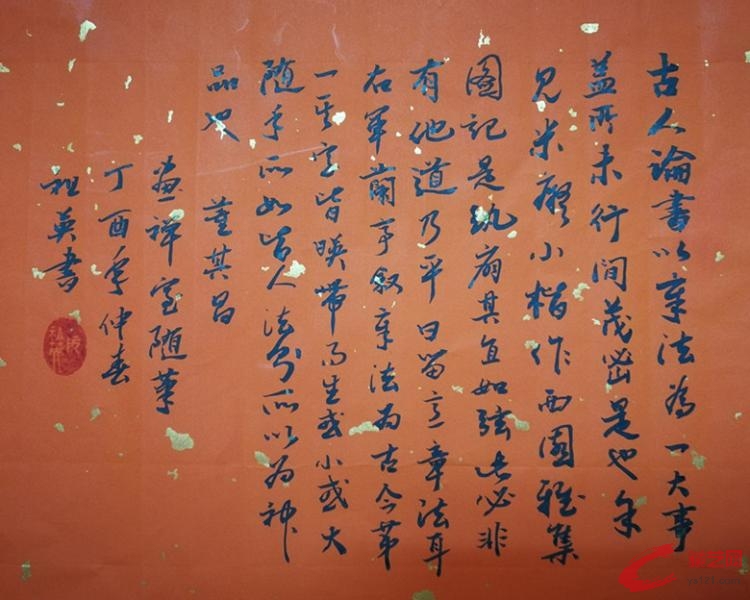 古人論書以章法為一大事
蓋所未行間茂密是也余
見米癡小楷作西園雅集
圖記是紈扇其直如弦此必非
有他道乃平日留意章法耳
右軍蘭亭敘章法為古今第
一其字皆映帶而生或小或大
隨手所如皆入法則所以為神
品也 董其昌
畫禪室隨筆
丁酉年仲春
祖英書